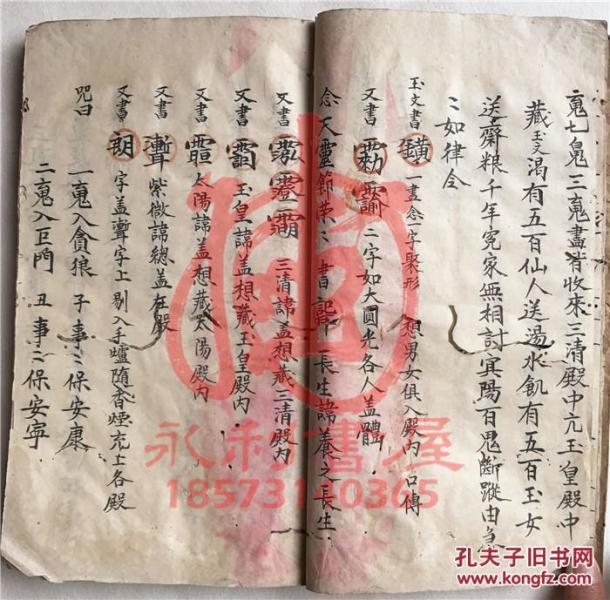 鬼七鬼三鬼盡皆收來三清殿中亢玉皇殿中
藏玉文渴有五百仙人送湯水飢有五百玉女
送齋粮千年冤家無相討冥陽百鬼斷蹤由急
〻如律令
玉文書 一畫念一字聚形 想男女俱入殿內 口傳
又書 二字如大圓光各人盖體
念天靈節榮〻 書記 長生諱養之長生
又書 三清諱盖想藏三清殿內
又書 玉皇諱盖想藏玉皇殿內
又書 太陽諱盖想藏太陽殿內
又書 紫微諱總盖在殿
又書 字盖 字上 剔入手爐隨香煙充上各殿
咒曰 一鬼入貪狼 子事〻保安康
二鬼入巨門 丑事〻保安寧
永利書屋
18573140365
孔夫子旧书网
www.kongfz.com